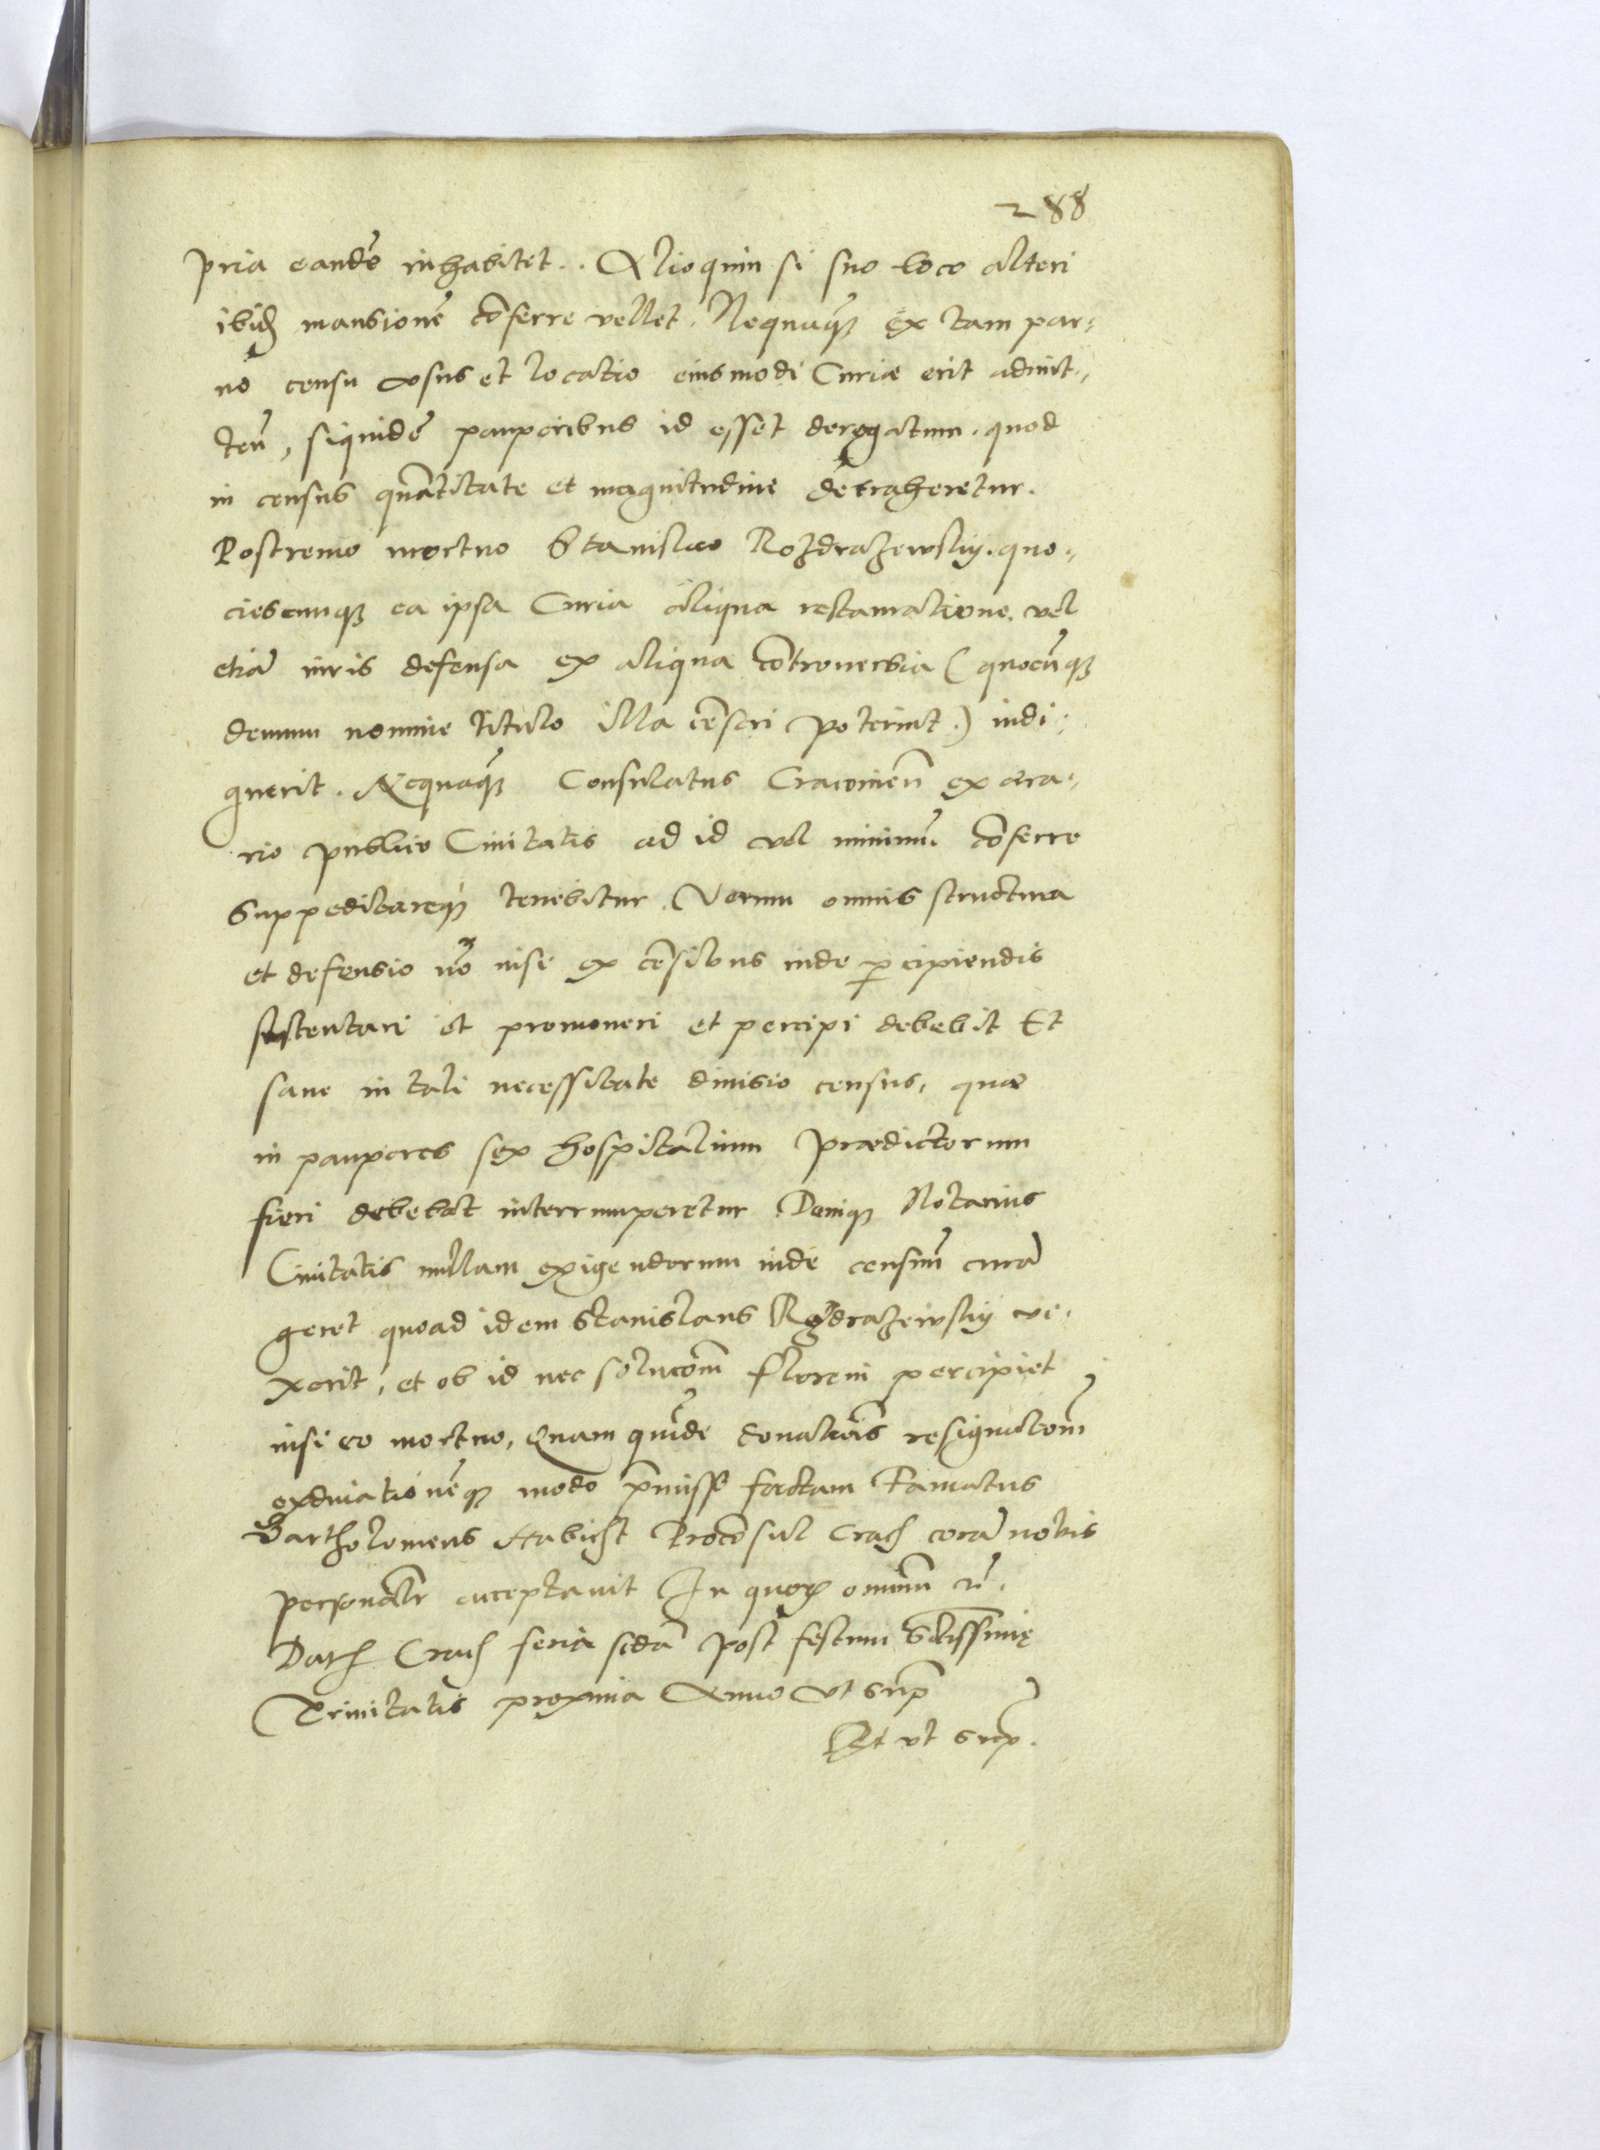 288
pria eandē inhabitet. Alioquin si suo loco alteri
ibid mansionē cōferre vellet. Nequaq̃ ex tam par=
uo censu vsus et locatio eiusmodi Curiæ erit admit=
ten̄, siquidē pauperibus id esset derogatum, quod
in census quātitate et magnitudine detraheretur.
Postremo mortuo Stanislao Rozdrazewsky, quo=
ciescunq; ea ipsa Curia aliqua restauratione, vel
etiā iuris defensa ex aliqua cōtrouersia (quocūq;
demum nomine titulo illa cēseri poterint) indi=
guerit. Nequaq̃ Consulatus Cracouien̄ ex æra=
rio publico Ciuitatis ad id vel minimū cōferre
suppeditareq; tenebitur. Verum omnis structura
et defensio nō nisi ex cēsibus inde ꝑcipiendis
sustentari et promoueri et percipi debebit Et
sane in tali necessitate diuisio census, quæ
in pauperes sex hospitalium prædictorum
fieri debebat interrumperetur Deniq; Notarius
Ciuitatis nullam exigendorum inde censuū curā
geret quoad idem Stanislaus Rozdrazewsky vi=
xerit, et ob id nec solucōm floreni percipiet
nisi eo mortuo, Quam quidē donatiōis resignatōm
exdiuationēq; modo p̄misso factam Famatus
Bartholomeus Habicht Procōsul Crac̄ corā nobis
personalr̄ acceptauit In quoꝝ omniū r̄.
Dat̄ Crac̄ feria scdā post festum Sctissimę
Trinitatis proxima Anno vt sup̄
Et vt sup̄.